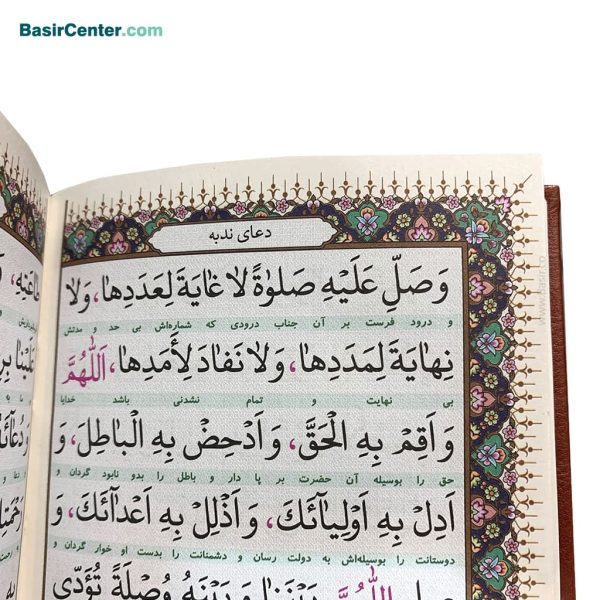 BasirCenter.com
دعای ندبه
وَصَلِّ عَلَيْهِ صَلٰوةً لٰا غٰايَةَ لِعَدَدِهٰا، وَلٰا
و درود فرست بر آن جناب درودی که شماره‌اش بی حد و مدتش
نِهٰايَةَ لِمَدَدِهٰا، وَلٰا نَفٰادَ لِأَمَدِهٰا، اَللّٰهُمَّ
بی نهایت و تمام نشدنی باشد خدایا
وَ اَقِمْ بِهِ الْحَقَّ، وَ اَدْحِضْ بِهِ الْبٰاطِلَ، وَ
حق را بوسیله آن حضرت بر پا دار و باطل را بدو نابود گردان و
اَدِلْ بِهِ اَوْلِيٰآئَكَ، وَ اَذْلِلْ بِهِ اَعْدٰآئَكَ، وَ
دوستانت را بوسیله‌اش به دولت رسان و دشمنانت را بدست او خوار گردان و
اللّٰهُمَّ بَيْنَنٰا وَ بَيْنَهُ وُصْلَةً تُؤَدّٖي